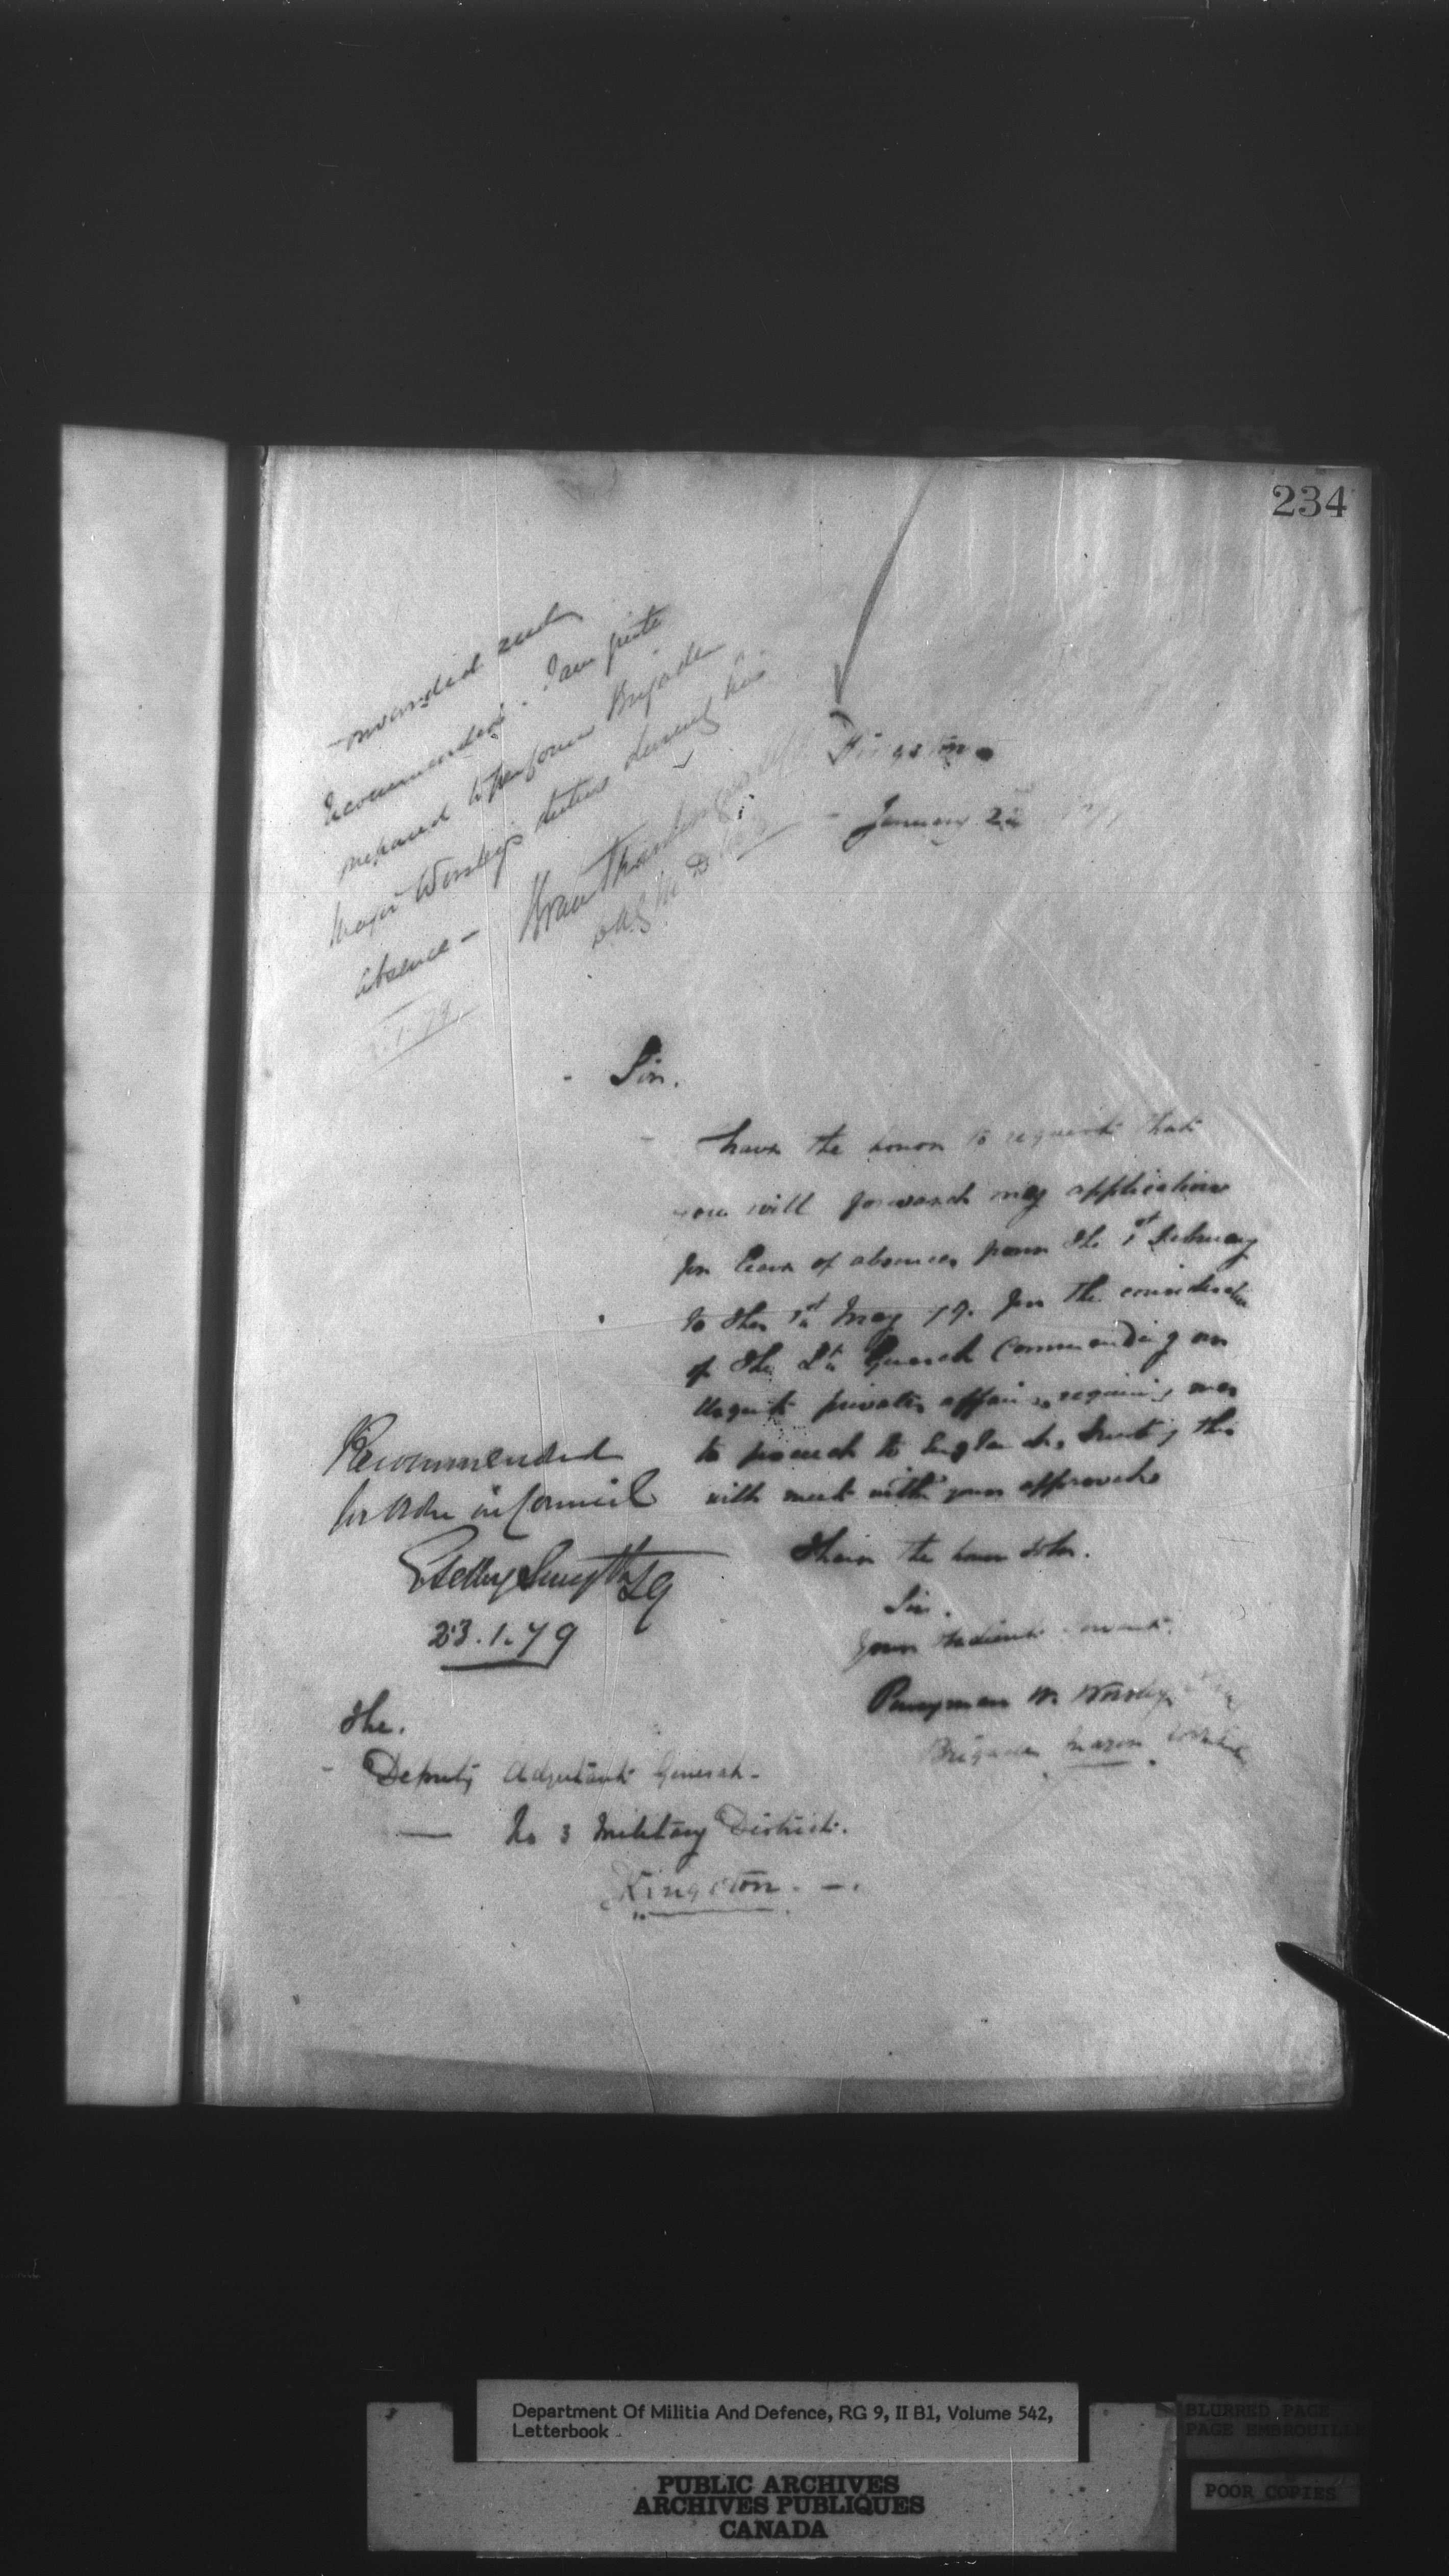 234
recommended. I am quite
prepared to perform Brigade
Major Worsley's duties during his
absence -
1.79.
Kingston
January 22
Sir.
have the honor to request that
you will forward my application
for leave of absence from the 1st February
to the 1st May 79. for the consideration
of the Lt General Commanding on
urgent private affairs requiring me
to proceed to England, trusting this
will meet with your approval.
I have the honor to be.
Sir.
Your obedient servant.
Pennyman W. Worsley
Brigade Major
Recommended
for Order in Council
E Selby Smyth LG
23.1.79
The.
Deputy Adjutant General -
No 3 Military District.
Kingston. -.
Department Of Militia And Defence, RG 9, II B1, Volume 542,
Letterbook
BLURRED PAGE
PAGE EMBROUILLÉE
POOR COPIES
PUBLIC ARCHIVES
ARCHIVES PUBLIQUES
CANADA